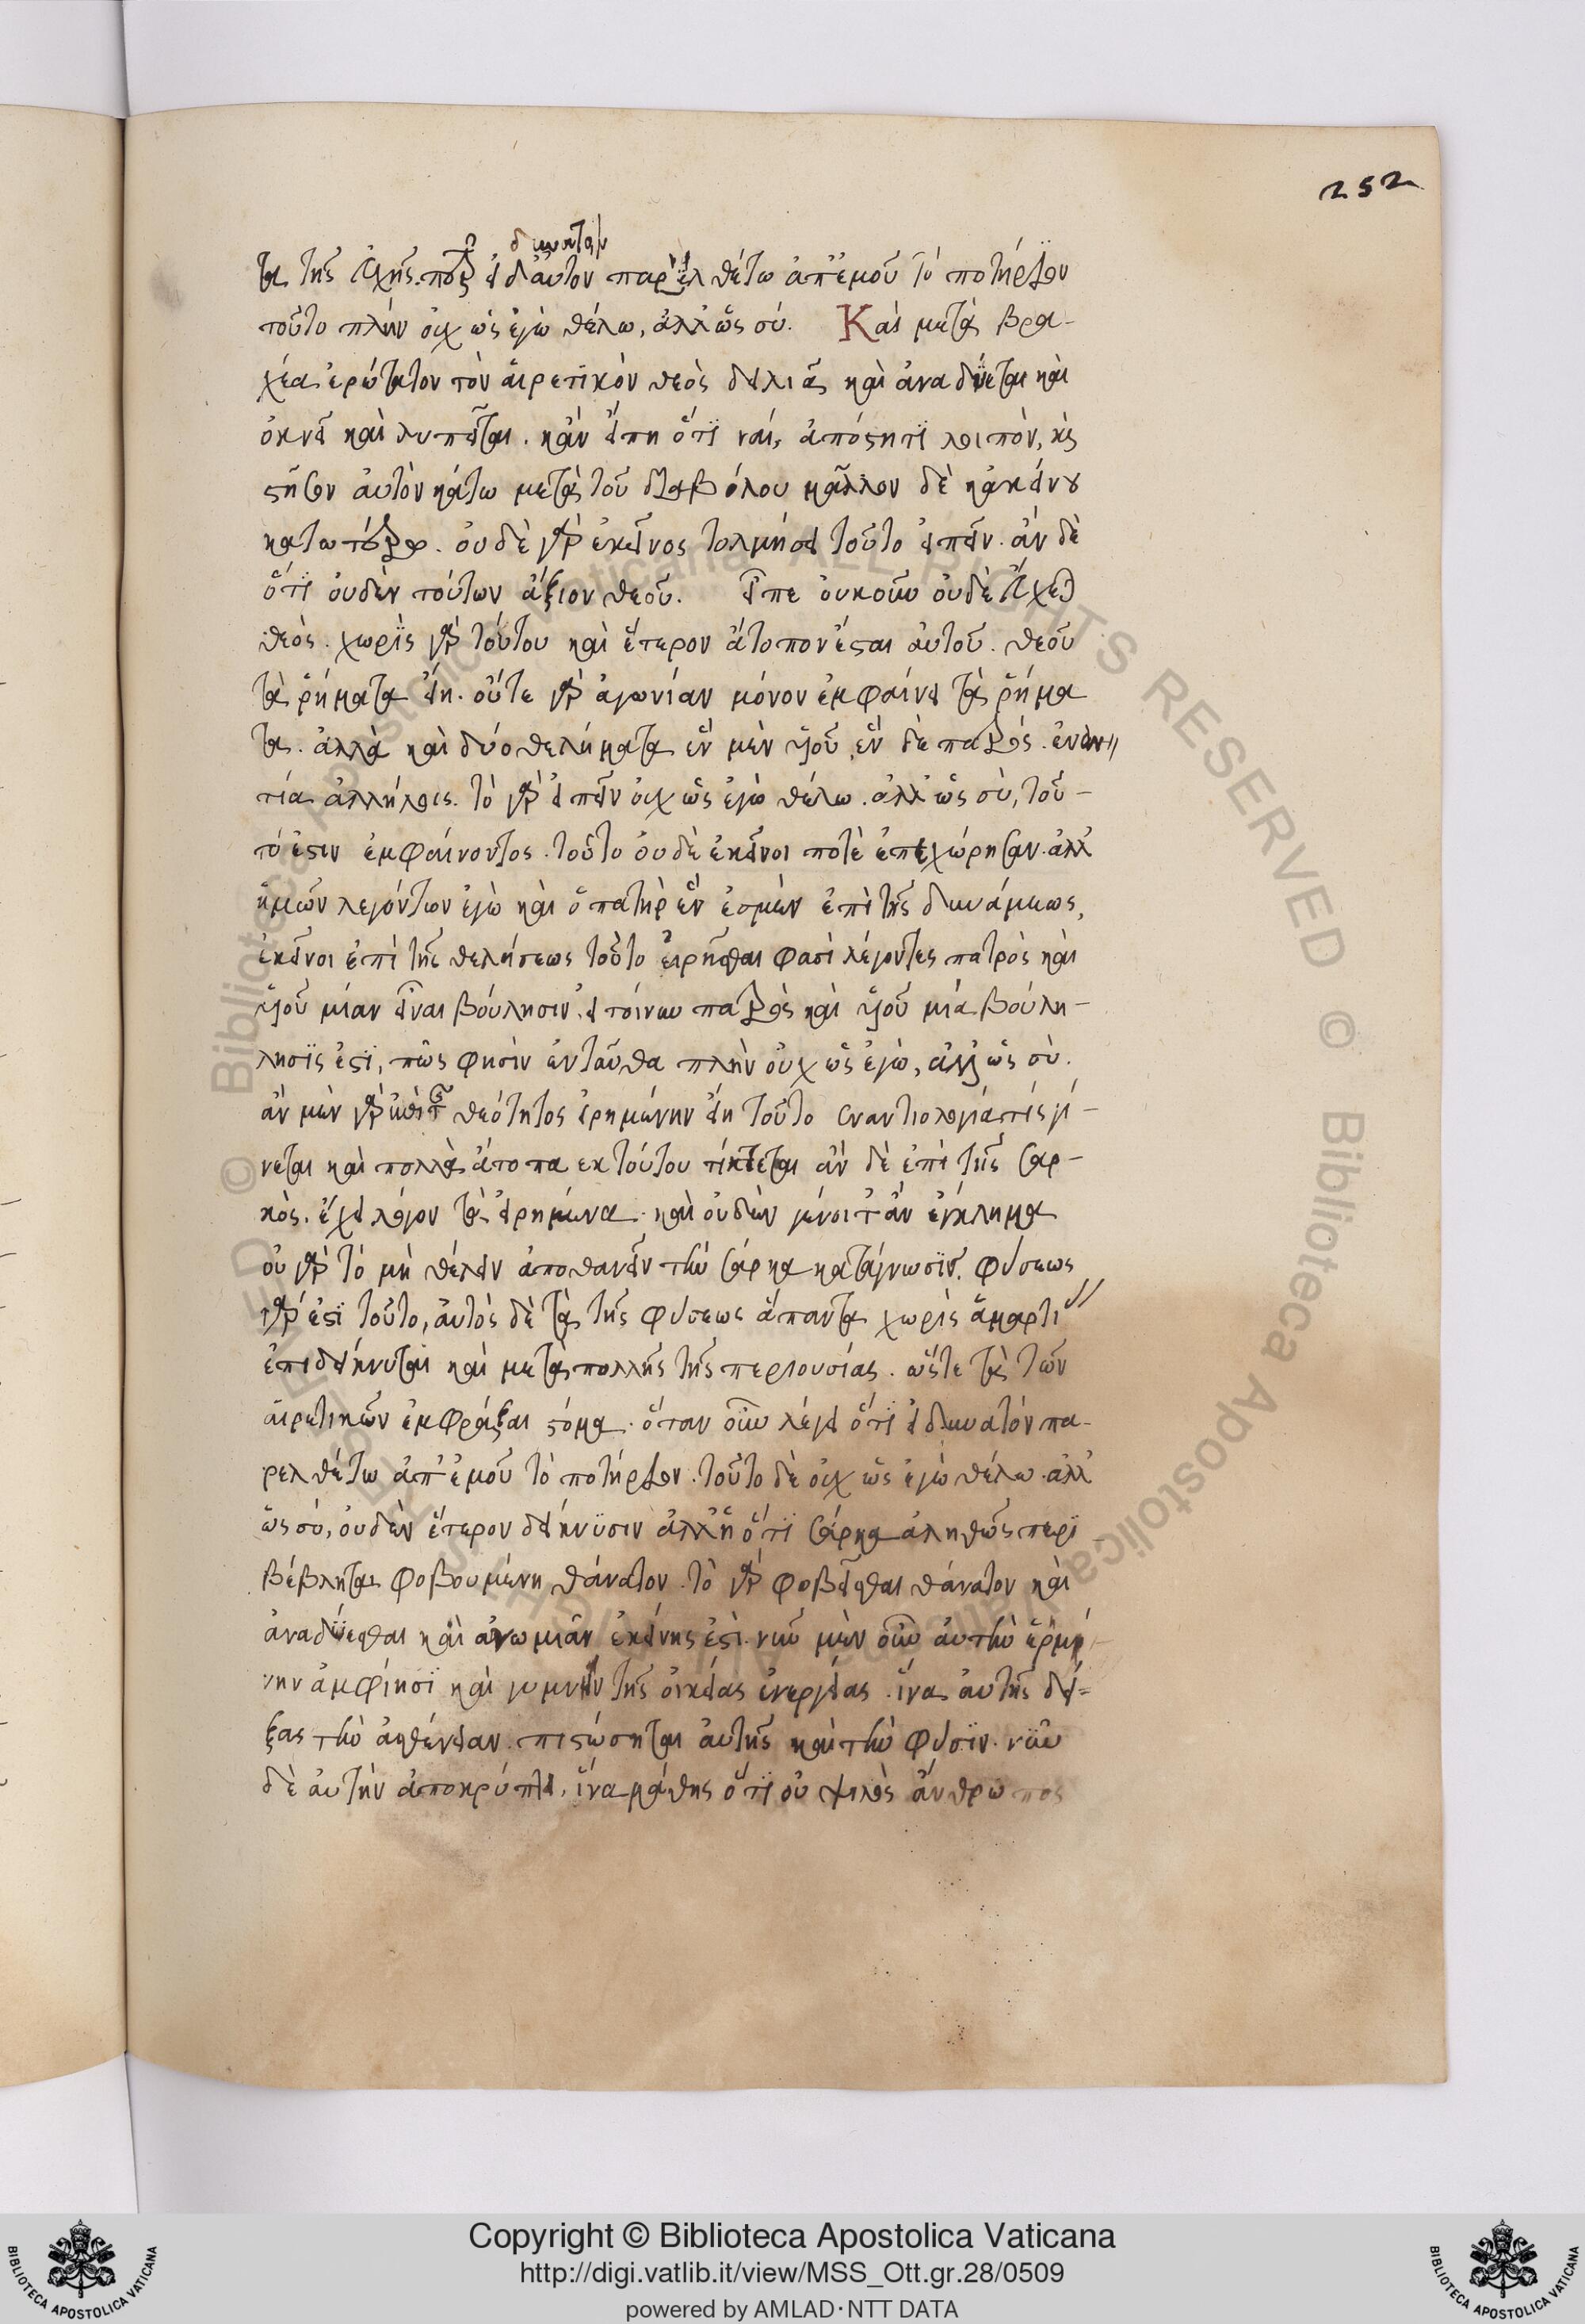 252
δυνατὸν
τα τῆς εὐχῆς. πάτερ εἰ δ αυτὸν παρελθέτω ἀπ' ἐμοῦ τὸ ποτήριον
τοῦτο πλὴν οὐχ ὡς ἐγὼ θέλω, ἀλλ' ὡς σύ. Καὶ μετὰ βρα-
χέα ἐρώτατον τὸν αἱρετικὸν θεὸς δειλιᾶ καὶ ἀναδύεται καὶ
ὀκνεῖ καὶ λυπεῖται. κἂν εἴπη ὅτι ναί, ἀπόστητι λοιπόν, κς
στῆσον αὐτὸν κάτω μετὰ τοῦ διαβόλου μᾶλλον δὲ κἀκείνου
κατωτέρω. οὐδὲ γὰρ ἐκεῖνος τολμήσει τοῦτο εἰπεῖν. ἂν δὲ
ὅτι οὐδὲν τούτων ἄξιον θεοῦ. εἶπε οὐκοῦν οὐδὲ εὔχεται
θεός. χωρὶς γὰρ τούτου καὶ ἕτερον ἄτοπον ἔσται αὐτοῦ. θεοῦ
τὰ ῥήματα εἴη. οὔτε γὰρ ἀγωνίαν μόνον ἐμφαίνει τὰ ῥήμα
τα. ἀλλὰ καὶ δύο θελήματα ἓν μὲν υἱοῦ, ἓν δὲ πατρός. ἐναν
τία ἀλλήλοις. τὸ γὰρ εἰπεῖν οὐχ ὡς ἐγὼ θέλω. ἀλλ' ὡς σὺ, τοῦ-
τό ἐστιν ἐμφαίνοντος. τοῦτο οὐδὲ ἐκεῖνοι ποτὲ ἐπεχώρησαν. ἀλλ'
ἡμῶν λεγόντων ἐγὼ καὶ ὁ πατὴρ ἕν ἐσμεν ἐπὶ τῆς δυνάμεως,
ἐκεῖνοι ἐπὶ τῆς θελήσεως τοῦτο εἰρῆσθαι φασὶ λέγοντες πατρὸς καὶ
υἱοῦ μίαν εἶναι βούλησιν. εἰ τοίνυν πατρὸς καὶ υἱοῦ μία βούλη-
λησίς ἐστι, πῶς φησὶν ἐνταῦθα πλὴν οὐχ ὡς ἐγὼ, ἀλλ' ὡς σὺ.
ἂν μὲν γὰρ ἐπὶ τῆς θεότητος εἰρημένην εἴη τοῦτο ἐναντιολογία τίς γί-
νεται καὶ πολλὰ ἄτοπα εκ τούτου τίκτεται ἂν δὲ ἐπὶ τῆς σαρ-
κὸς. ἔχει λόγον τὰ εἰρημένα. καὶ οὐδὲν γένοιτ' ἂν ἔγκλημα
οὐ γὰρ τὸ μὴ θέλειν ἀποθανεῖν τὴν σάρκα κατάγνωσις. φύσεως
γάρ ἐστι τοῦτο, αὐτὸς δὲ τὰ τῆς φύσεως ἅπαντα χωρὶς ἁμαρτί
ἐπιδείκνυται καὶ μετὰ πολλῆς τῆς περιουσίας. ὥστε τὰ τῶν
αἱρετικῶν ἐμφράξαι στόμα. ὅταν οὖν λέγει ὅτι εἰ δυνατόν πα-
ρελθέτω ἀπ' ἐμοῦ τὸ ποτήριον. τοῦτο δὲ οὐχ ὡς ἐγὼ θέλω. ἀλλ'
ὡς σύ, οὐδὲν ἕτερον δείκνυσιν ἀλλ' ἢ ὅτι σάρκα ἀληθῶς περι
βέβληται φοβουμένη θάνατον. τὸ γὰρ φοβεῖσθαι θάνατον καὶ
ἀναδύεσθαι καὶ ἀγωνιᾶν ἐκείνης ἐστὶ. νῦν μὲν οὖν αὐτὴν ἔρημ-
νην ἀμφίησι καὶ γυμνὴν τῆς οἰκείας ἐνεργείας. ἵνα αὐτῆς δεί-
ξας τὴν ἀσθένειαν. πιστώσηται αὐτῆς καὶ τὴν φύσιν. νῦν
δὲ αὐτὴν ἀποκρύπτει, ἵνα μάθης ὅτι οὐ ψιλὸς ἄνθρωπος
Copyright © Biblioteca Apostolica Vaticana
http://digi.vatlib.it/view/MSS_Ott.gr.28/0509
powered by AMLAD·NTT DATA
BIBLIOTECA APOSTOLICA VATICANA
BIBLIOTECA APOSTOLICA VATICANA